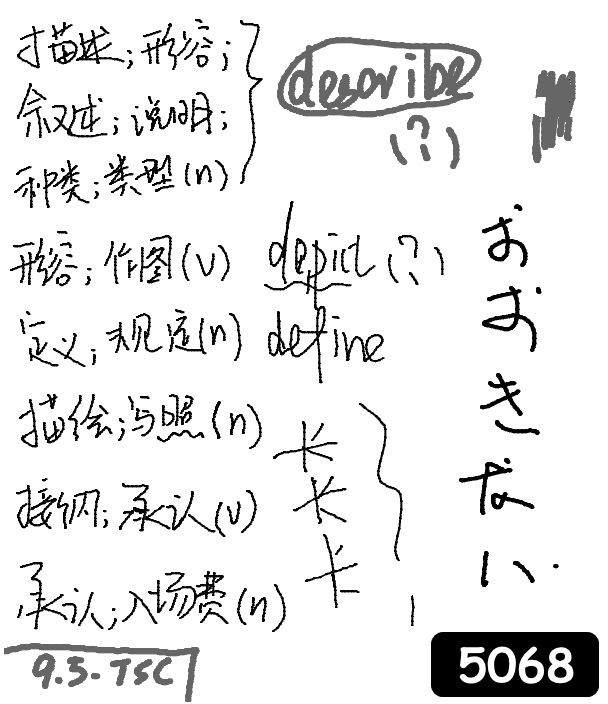 描述；形容；
叙述；说明；
种类；类型(n)
describe
(?)
形容；作图(v) depict (?)
定义；规定(n) define
描绘；写照(n) 长
接纳；承认(v) 长
承认；入场费(n) 长
おおきない.
9.3-TSC
5068